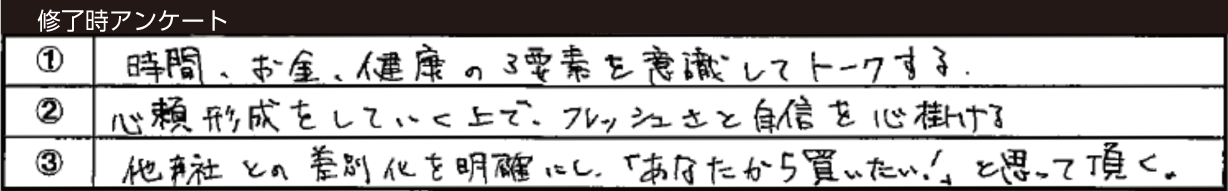 修了時アンケート
① 時間、お金、健康の3要素を意識してトークする.
② 心頼形成をしていく上で、フレッシュさと自信を心掛ける
③ 他社との差別化を明確にし、「あなたから買いたい!」と思って頂く。